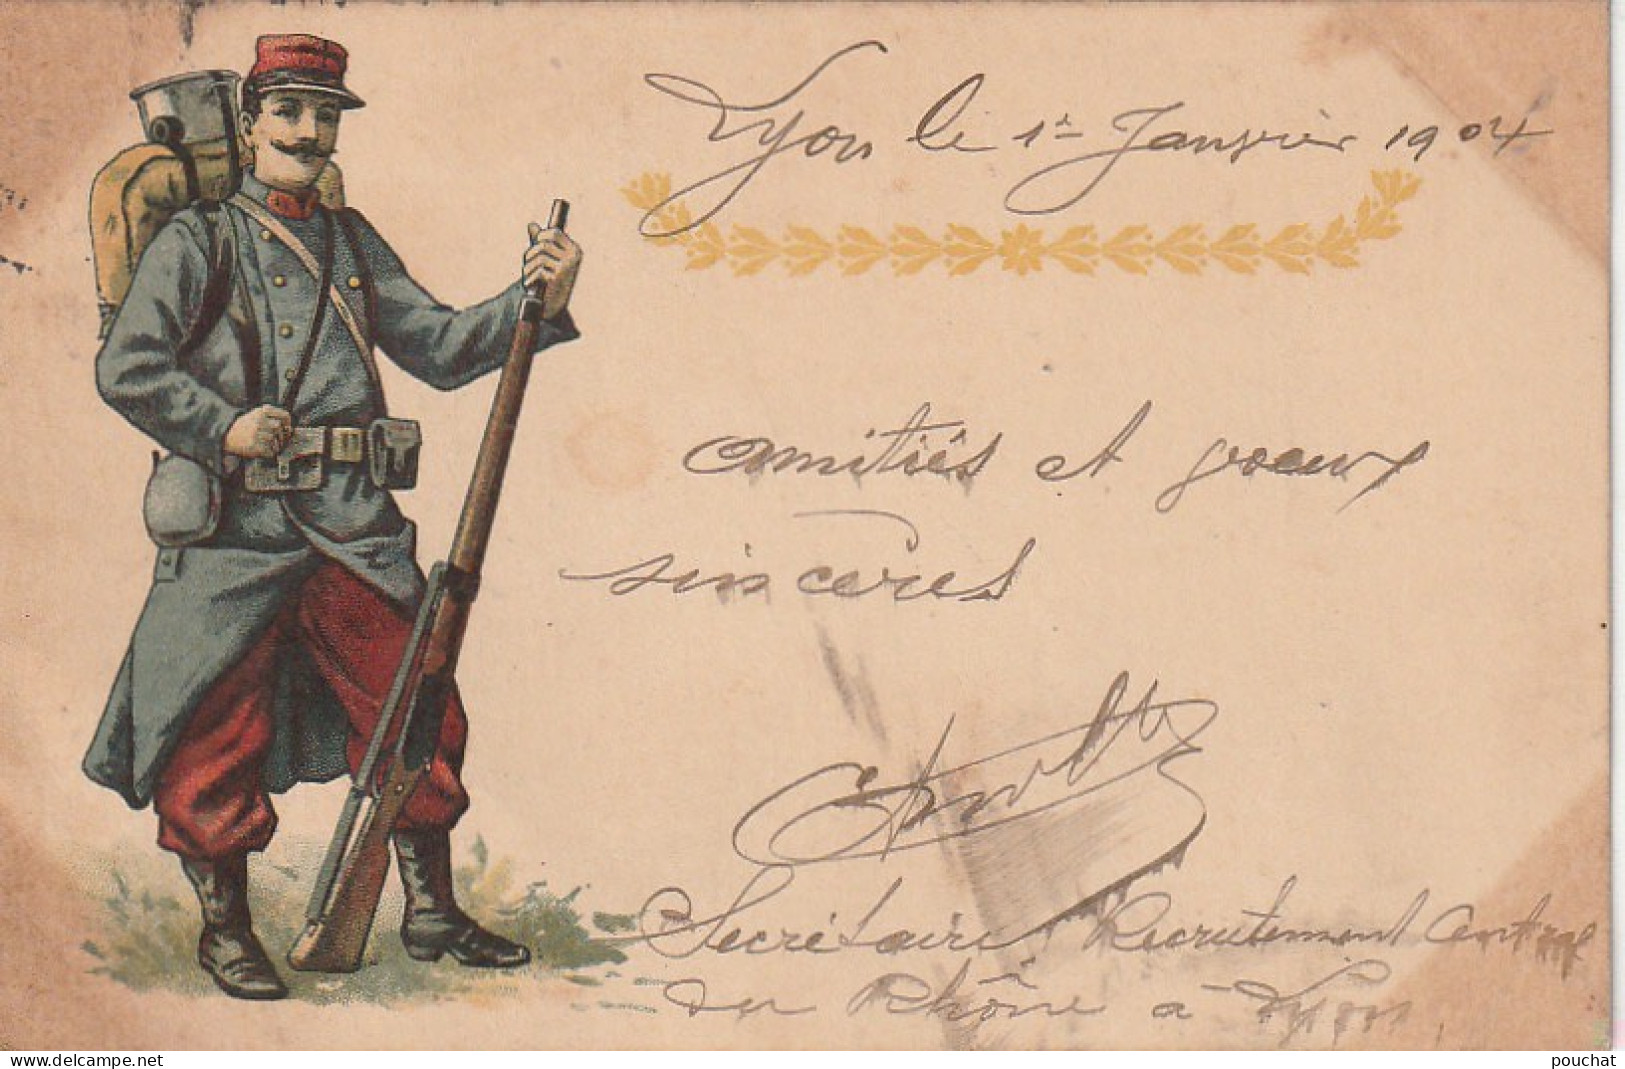 Lyon le 1er Janvier 1904
amitiés et voeux
sincères
Secrétaire Recrutement Central
du Rhône à Lyon
delcampe.net
pouchat